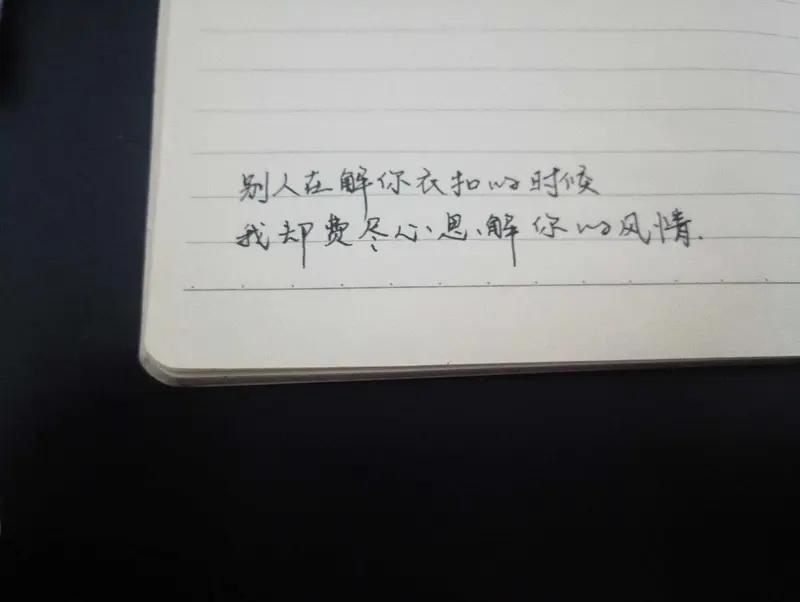 别人在解你衣扣的时候
我却费尽心思解你的风情.